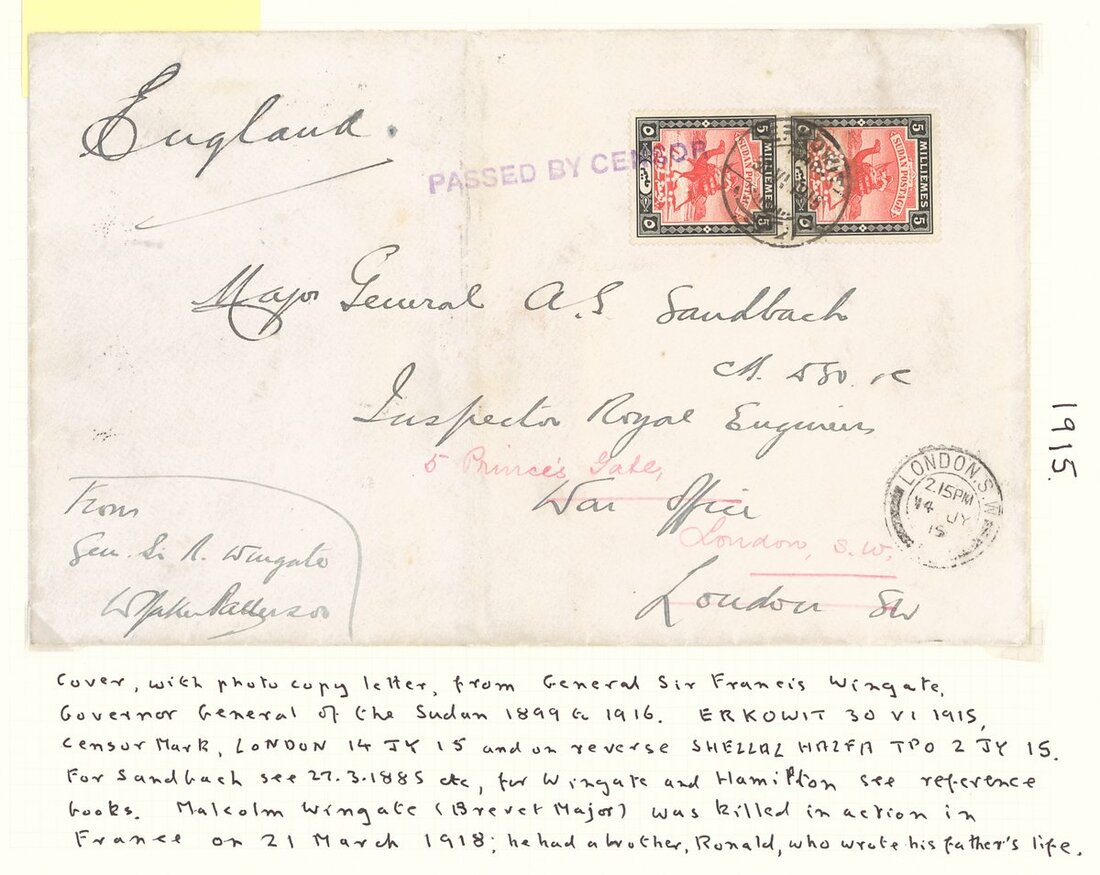 England.
PASSED BY CENSOR
5 MILLIEMES 5
SUDAN POSTAGE
5 MILLIEMES 5
SUDAN POSTAGE
Major General A.S Sandbach
CB. DSO. RE
Inspector Royal Engineers
5 Prince's Gate,
War Office
London, S.W.
London SW
LONDON.S.W
2.15PM
14 JY
15
From
Gen. Sir R. Wingate
1915.
Cover, with photo copy letter, from General Sir Francis Wingate,
Governor General of the Sudan 1899 to 1916. ERKOWIT 30 VI 1915,
Censor Mark, LONDON 14 JY 15 and on reverse SHELLAL HALFA TPO 2 JY 15.
For Sandbach see 27.3.1885 etc, for Wingate and Hamilton see reference
books. Malcolm Wingate (Brevet Major) was killed in action in
France on 21 March 1918; he had a brother, Ronald, who wrote his father's life.